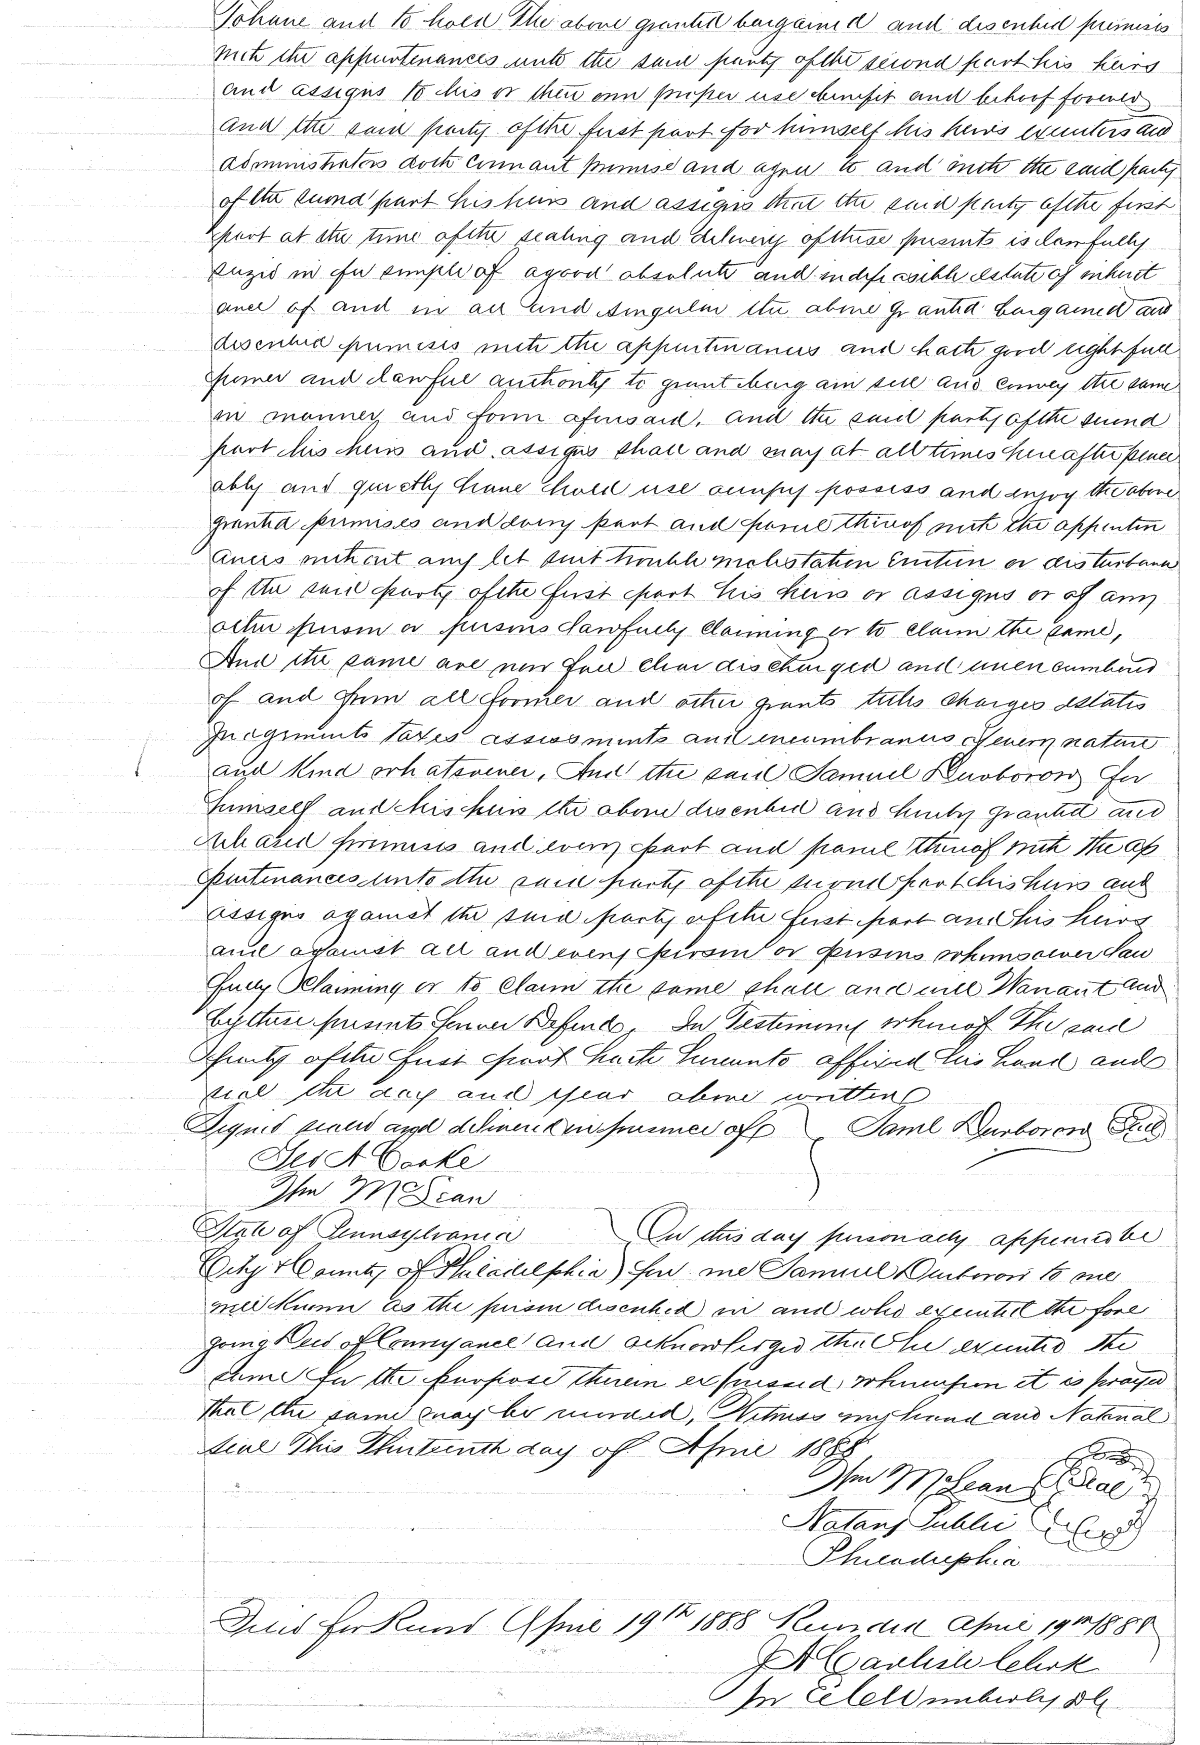 To have and to hold The above granted bargained and described premises
with the appurtenances unto the said party of the second part his heirs
and assigns to his or their own proper use benefit and behoof forever
and the said party of the first part for himself his heirs executors and
administrators doth covenant promise and agree to and with the said party
of the second part his heirs and assigns that the said party of the first
part at the time of the sealing and delivery of these presents is lawfully
seized in fee simple of a good absolute and indefeasible estate of inherit
ance of and in all and singular the above granted bargained and
described premises with the appurtenances and hath good right full
power and lawful authority to grant bargain sell and convey the same
in manner and form aforesaid. and the said party of the second
part his heirs and assigns shall and may at all times hereafter peace
ably and quietly have hold use occupy possess and enjoy the above
granted premises and every part and parcel thereof with the appurten
ances without any let suit trouble molestation Eviction or disturbance
of the said party of the first part his heirs or assigns or of any
other person or persons lawfully claiming or to claim the same,
And the same are now free clear discharged and unencumbered
of and from all former and other grants titles charges estates
judgments taxes assessments and encumbrances of every nature
and kind whatsoever. And the said Samuel Durborow for
himself and his heirs the above described and hereby granted and
released premises and every part and parcel thereof with the ap
purtenances unto the said party of the second part his heirs and
assigns against the said party of the first part and his heirs
and against all and every person or persons whomsoever law
fully Claiming or to claim the same shall and will Warrant and
by these presents forever Defend. In Testimony whereof The said
party of the first part hath hereunto affixed his hand and
seal the day and year above written
Signed sealed and delivered in presence of Saml Durborow Seal
Geo A Cooke
Wm McLean
State of Pennsylvania On this day personally appeared be
City & County of Philadelphia) fore me Samuel Durborow to me
well known as the person described in and who executed the fore
going Deed of Conveyance and acknowledged that he executed the
same for the purpose therein expressed, whereupon it is prayed
that the same may be recorded, Witness my hand and Notarial
seal This Thirteenth day of April 1888
Wm McLean Seal
Notary Public
Philadelphia
Filed for Record April 19th 1888 Recorded April 19th 1888
J A Carlisle Clerk